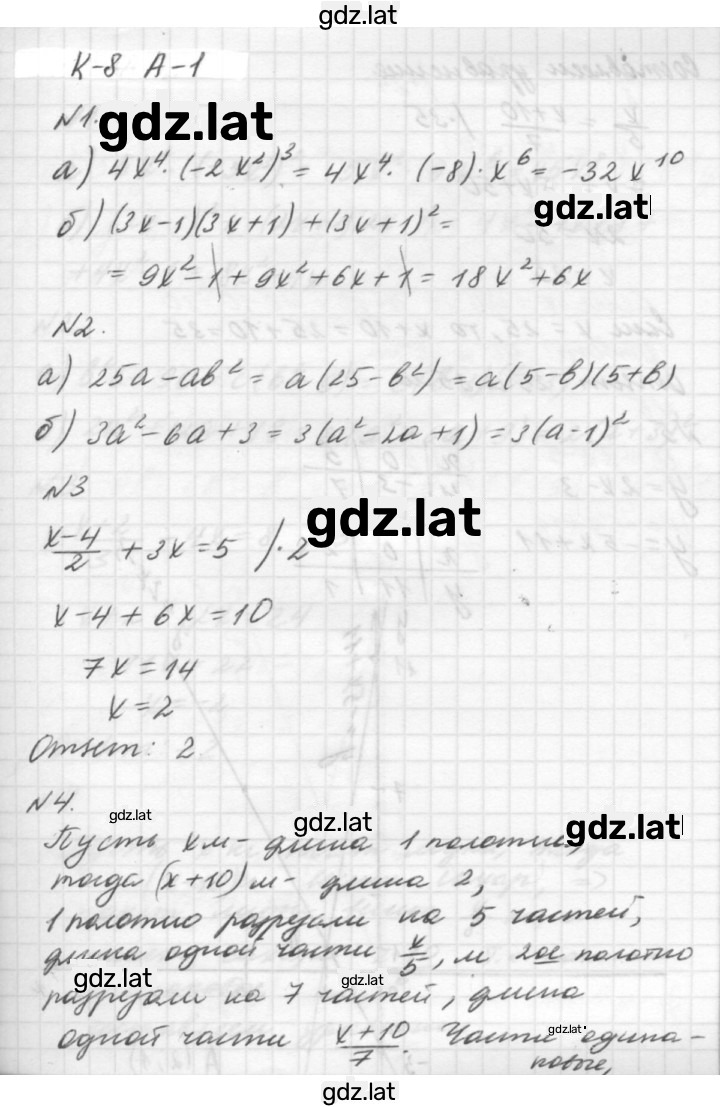 gdz.lat
К-8 А-1
N1.
gdz.lat
а) 4x⁴·(-2x²)³ = 4x⁴·(-8)·x⁶ = -32x¹⁰
gdz.lat
б) (3x-1)(3x+1)+(3x+1)² =
= 9x²-1+9x²+6x+1 = 18x²+6x
N2.
а) 25a-ab² = a(25-b²) = a(5-b)(5+b)
б) 3a²-6a+3 = 3(a²-2a+1) = 3(a-1)²
N3
gdz.lat
(x-4)/2 + 3x = 5 |·2
x-4+6x=10
7x=14
x=2
Ответ: 2.
N4.
gdz.lat gdz.lat gdz.lat
Пусть x м - длина 1 полотна,
тогда (x+10) м - длина 2,
1 полотно разрезали на 5 частей,
длина одной части x/5, м 2ое полотно
gdz.lat gdz.lat
разрезали на 7 частей, длина
gdz.lat
одной части (x+10)/7. Части одина-
ковые,
gdz.lat